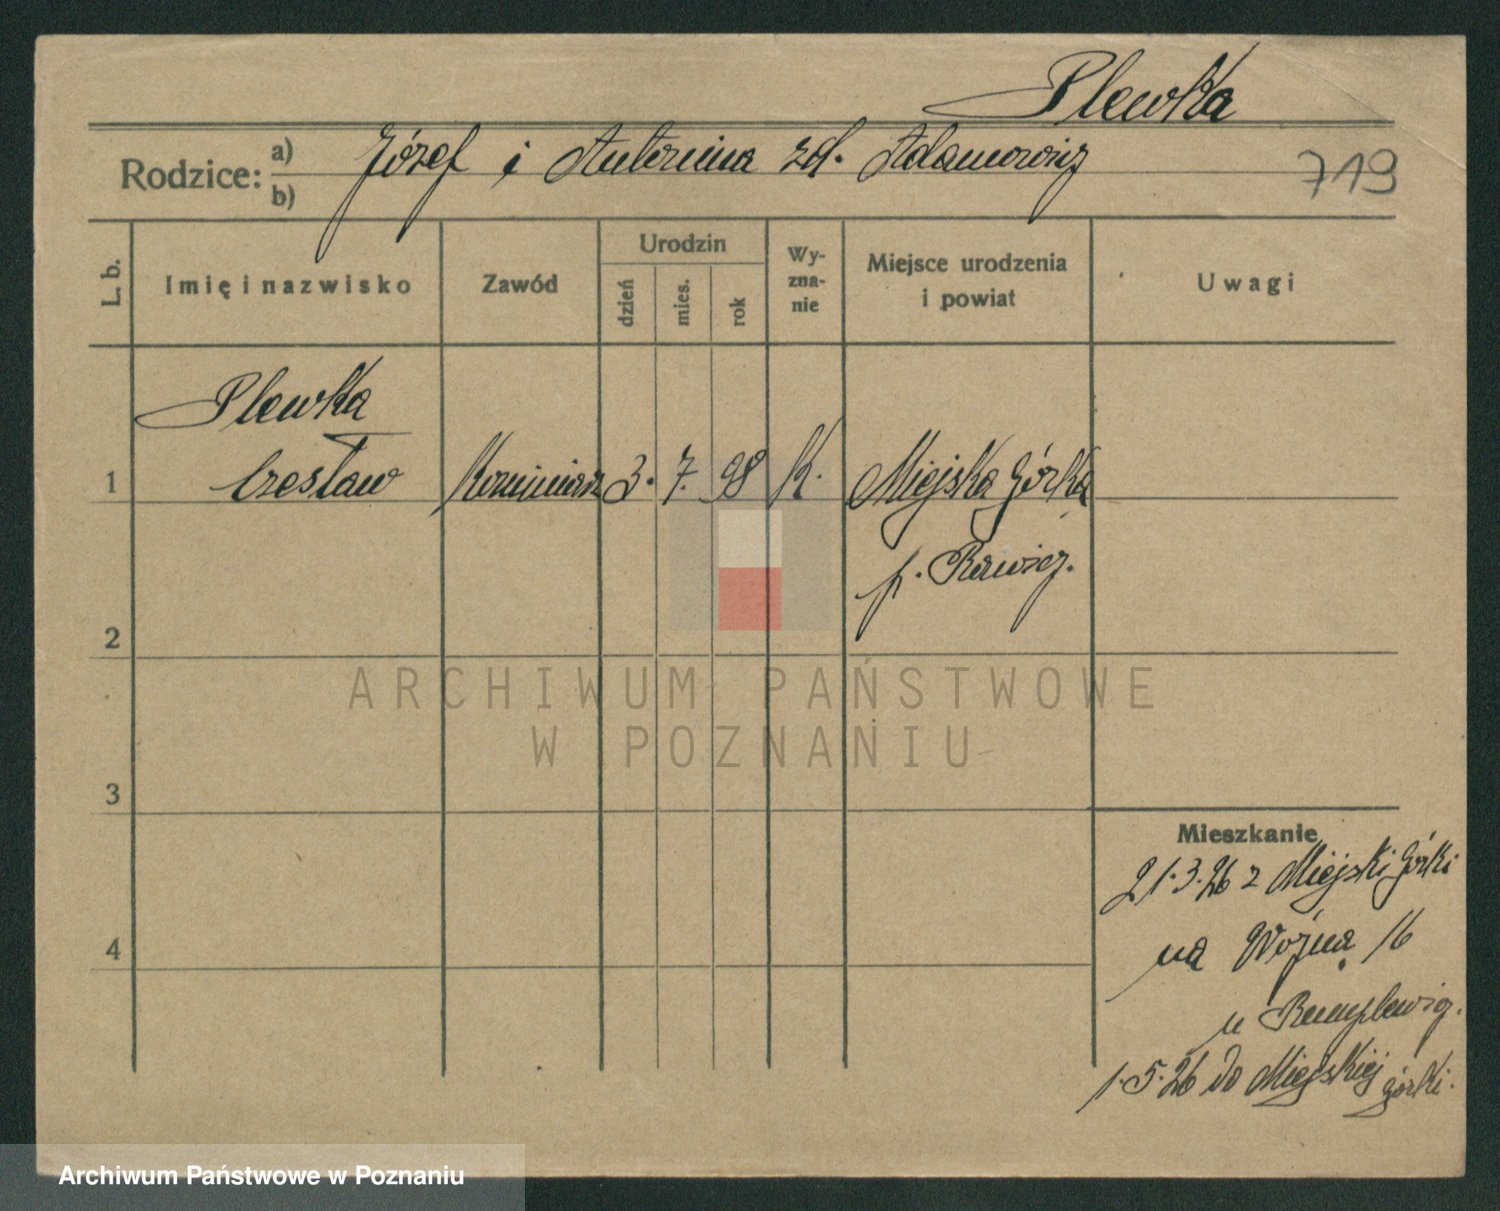 Plewka
Rodzice: a) b) Józef i Antonina zd. Adamowicz
719
L. b.
Imię i nazwisko
Zawód
Urodzin
dzień
mies.
rok
Wy-
zna-
nie
Miejsce urodzenia
i powiat
Uwagi
Plewka
1 Czesław Kominiarz 3. 7. 98 K. Miejska Górka
p. Rawicz.
2
ARCHIWUM PAŃSTWOWE
W POZNANIU
3
Mieszkanie
21.3.26 z Miejski Górki
4
na Wozną 16
u
1.5.26 do Miejskiej
Górki.
Archiwum Państwowe w Poznaniu